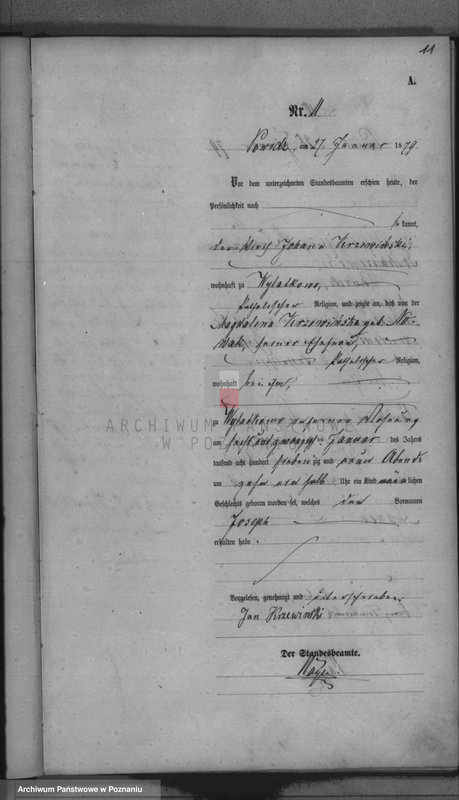 11
A.
Nr. 11
Powidz, am 27. Januar 1879
Vor dem unterzeichneten Standesbeamten erschien heute, der
Persönlichkeit nach
be kannt,
der Johann
wohnhaft zu Wylatkowo,
katholischer Religion, und zeigte an, daß von der
Magdalena geb. No-
wak, seiner Ehefrau,
katholischer Religion,
wohnhaft bei ihm,
zu Wylatkowo in seiner Wohnung
am sechsundzwanzigsten Januar des Jahres
tausend acht hundert sieben zig und neun Abends
um zehn ein halb Uhr ein Kind männlichen
Geschlechts geboren worden sei, welches den Vornamen
Joseph
erhalten habe.
Vorgelesen, genehmigt und unterschrieben
Jan Krzewiński
Der Standesbeamte.
ARCHIWUM PAŃSTWOWE
W POZNANIU
Archiwum Państwowe w Poznaniu